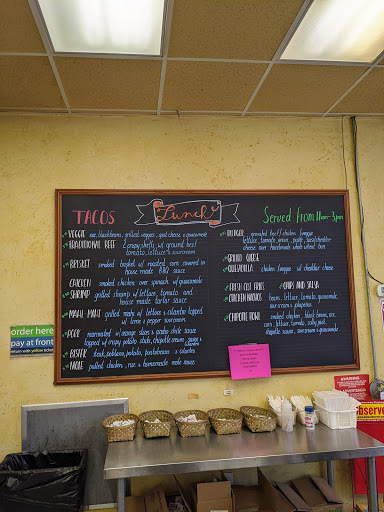 TACOS
Lunch
Served from 11am-3pm
VEGGIE rice, blackbeans, grilled veggies, goat cheese & guacamole
TRADITIONAL BEEF 2 crispy shells w/ ground beef
tomato, lettuce & sourcream
BRISKET smoked brisket w/ roasted corn covered in
house made BBQ sauce
CHICKEN smoked chicken over spinach w/ guacamole
SHRIMP grilled shrimp w/ lettuce, tomato and
house made tartar sauce
MAHI-MAHI grilled mahi w/ lettuce & cilantro topped
w/ lime & pepper sourcream
PORK marinated w/ orange slices & ancho chile sauce
topped w/ crispy potato sticks, chipotle cream sauce &
cilantro
BISTEC steak, poblano, potato,
& cilantro
MOLE pulled chicken, rice & homemade mole sauce
BURGER grassfed beef/chicken/veggie
lettuce, tomato, onion, swiss/cheddar
cheese over handmade whole wheat bun
GRILLED CHEESE
QUESADILLA chicken/veggie w/ cheddar cheese
FRESH CUT FRIES
CHIPS AND SALSA
CHICKEN NACHOS beans, lettuce, tomato, guacamole,
sour cream & jalapeño
CHIPOTLE BOWL smoked chicken, black beans, rice,
corn, lettuce, tomato,
chipotle sauce, sourcream & guacamole
order here
pay at front
return with yellow ticket